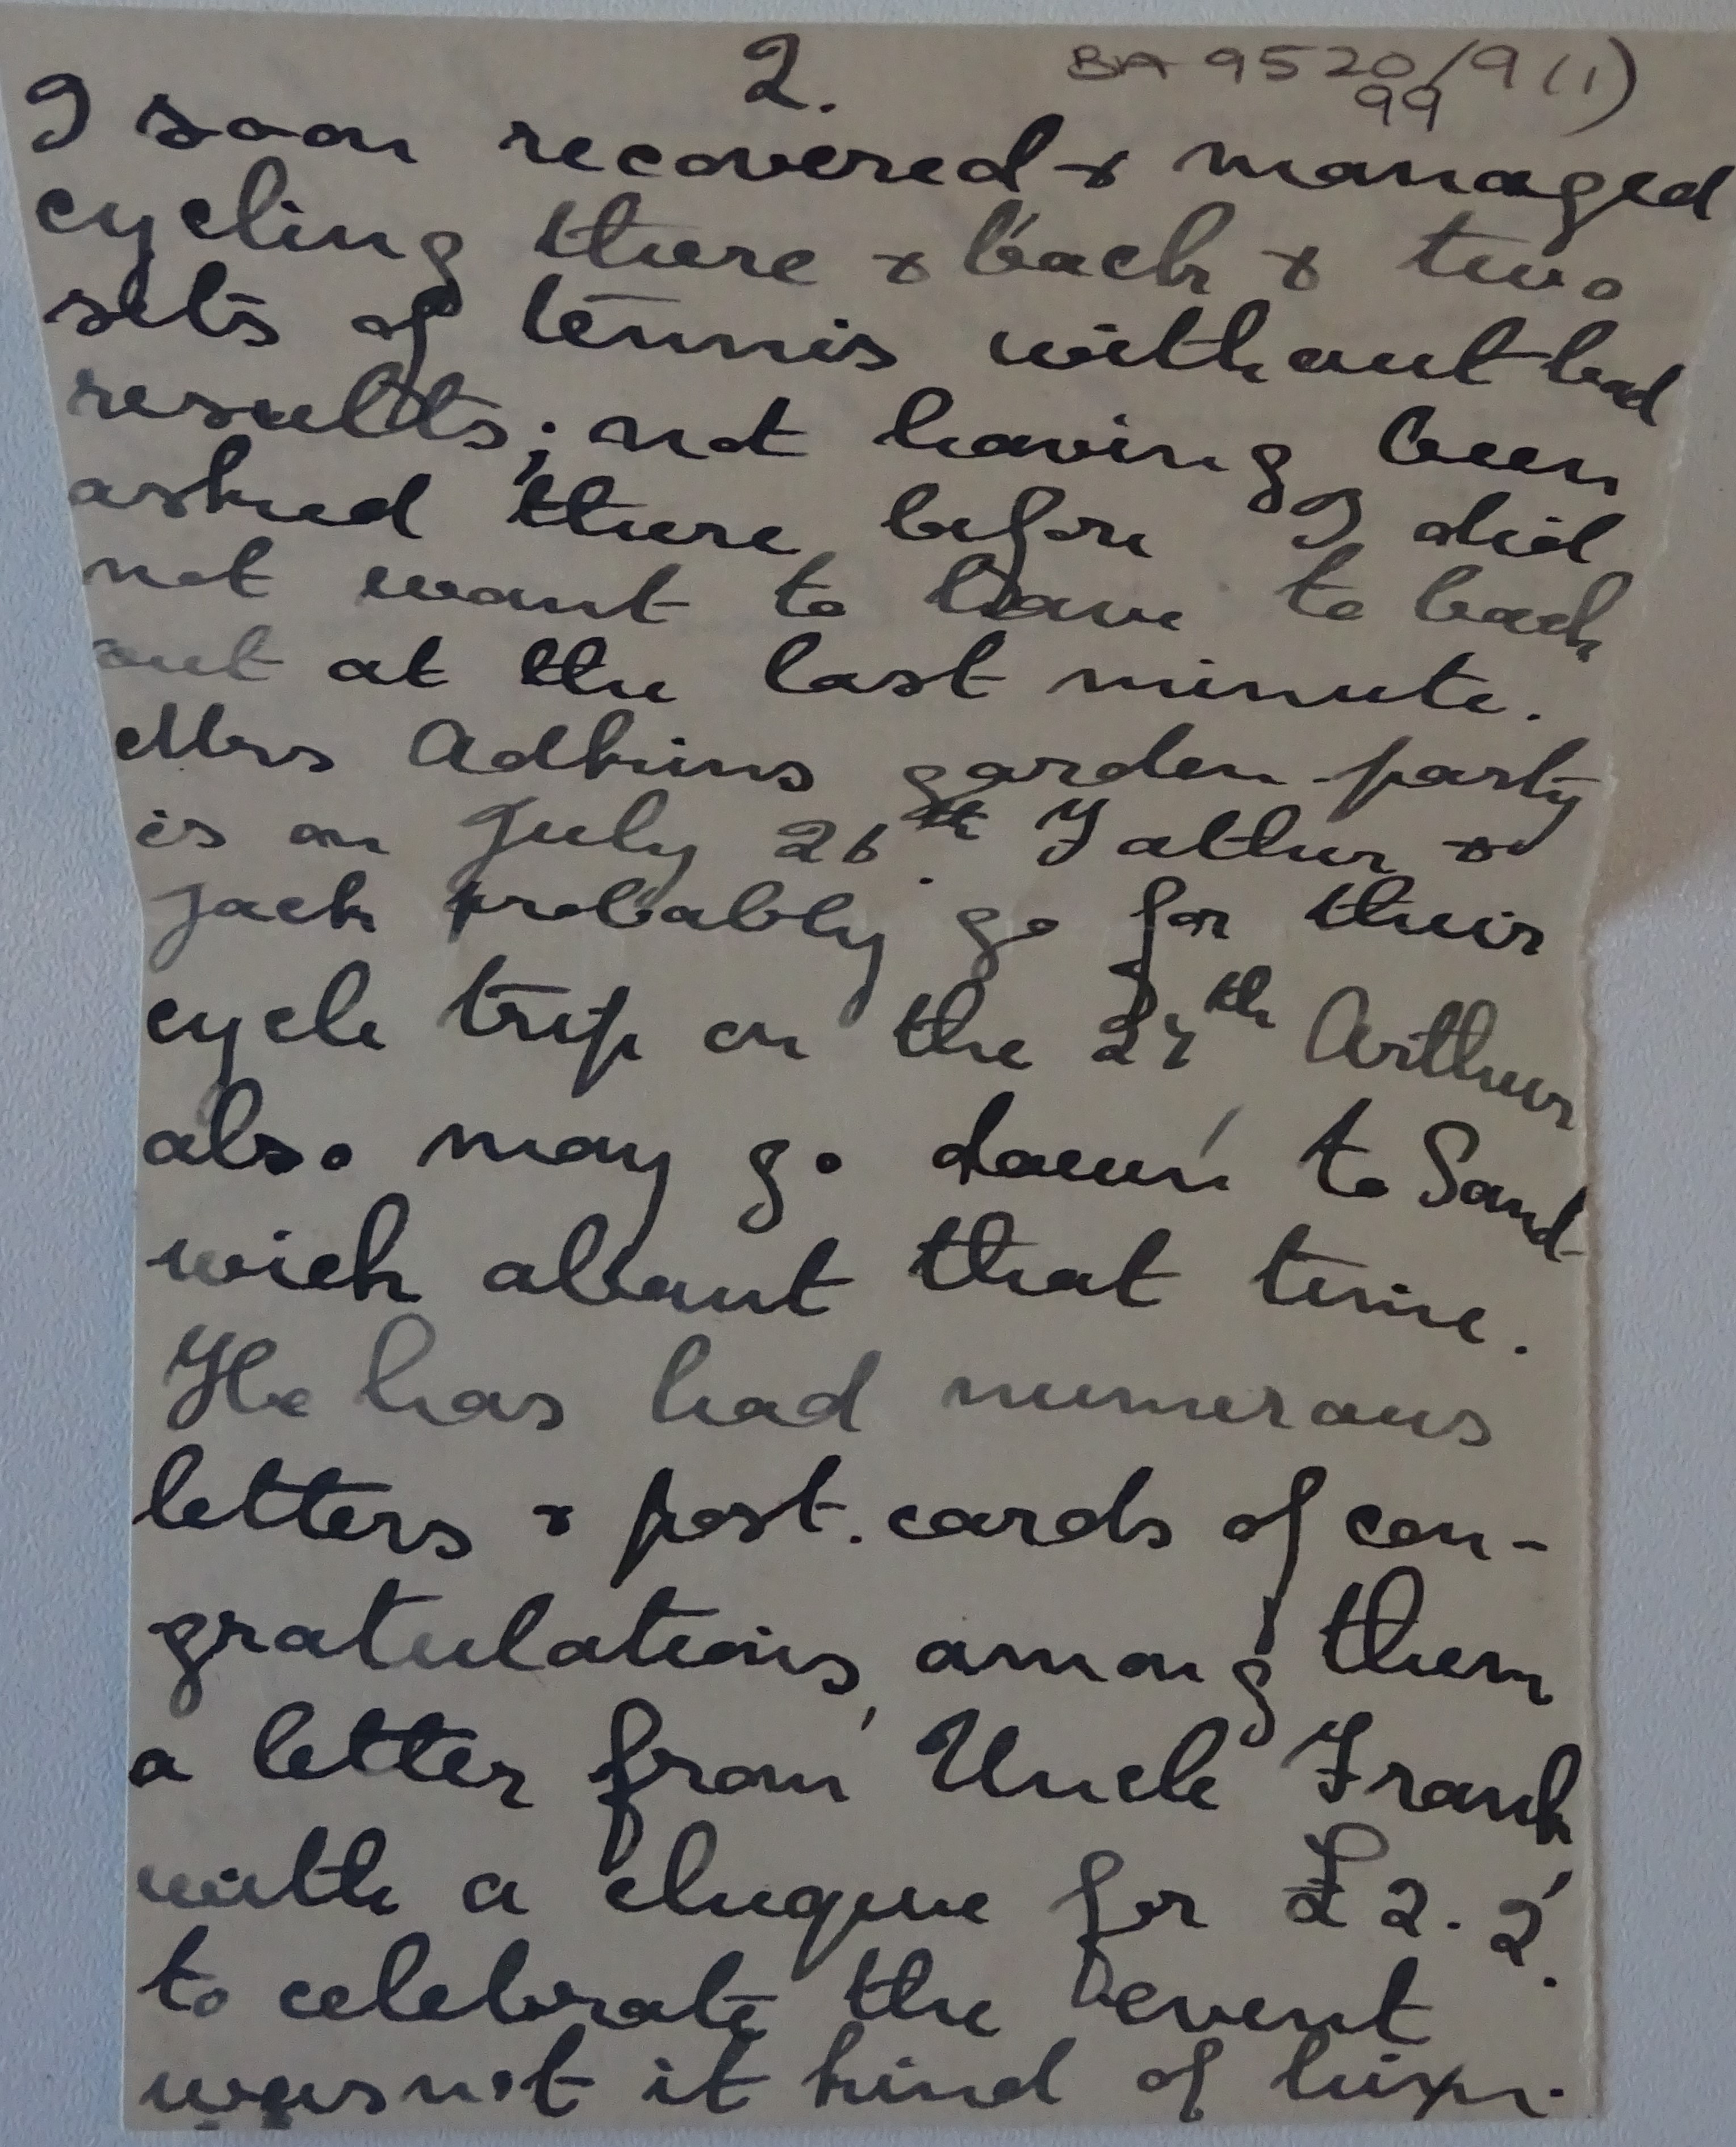 2.
BA 9520/9(1)
99
I soon recovered & managed
cycling there & back & two
sets of tennis without bad
results; not having been
asked there before I did
not want to have to back
out at the last minute.
Mrs Adkins garden party
is on July 26th. Father &
Jack probably go for their
cycle trip on the 27th Arthur
also may go down to Sand-
wich about that time.
He has had numerous
letters & post.cards of con-
gratulations, among them
a letter from Uncle Frank
with a cheque for £2.2.
to celebrate the event
was not it kind of him.